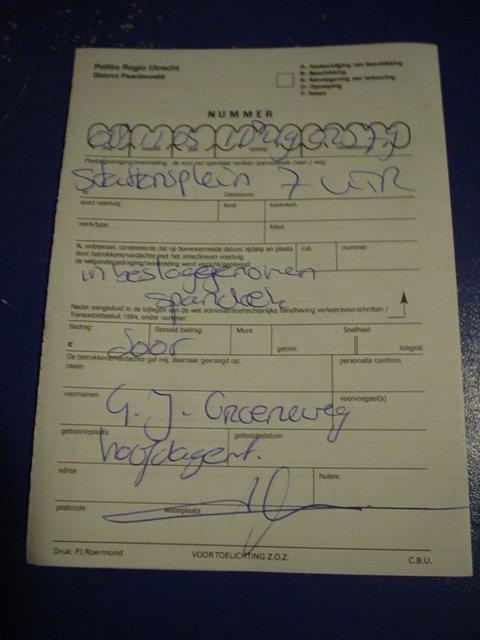 Politie Regio Utrecht
District Paardenveld
A- Aankondiging van beschikking
B- Beschikking
K- Kennisgeving van bekeuring
O- Oproeping
NUMMER
Plaats gedraging/overtreding: de voor het openbaar verkeer openstaande (naam) weg:
Stationsplein 7 UTR
Gemeente:
soort voertuig
land
kenteken
merk/type
kleur
Ik, ambtenaar, constateerde dat op bovenvermelde datum, tijdstip en plaats
door betrokkene/verdachte met het omschreven voertuig
de volgende gedraging/overtreding werd verricht/gepleegd:
cat.
nummer:
in beslaggenomen
spandoek
Nader aangeduid in de bijlagen van de wet administratiefrechtelijke handhaving verkeersvoorschriften /
Transactiebesluit 1994, onder nummer:
Bedrag:
Betaald bedrag:
Munt
Snelheid
€
gecorr.
toegest.
door
De betrokkene/verdachte gaf mij, daarnaar gevraagd op:
personalia conform
naam:
voornamen
voorvoegsel(s)
G.J. Groeneweg
geboorteplaats
geboortedatum
hoofdagent.
adres
huisnr.
postcode
woonplaats
Druk: P.I. Roermond
VOOR TOELICHTING Z.O.Z.
C.B.U.